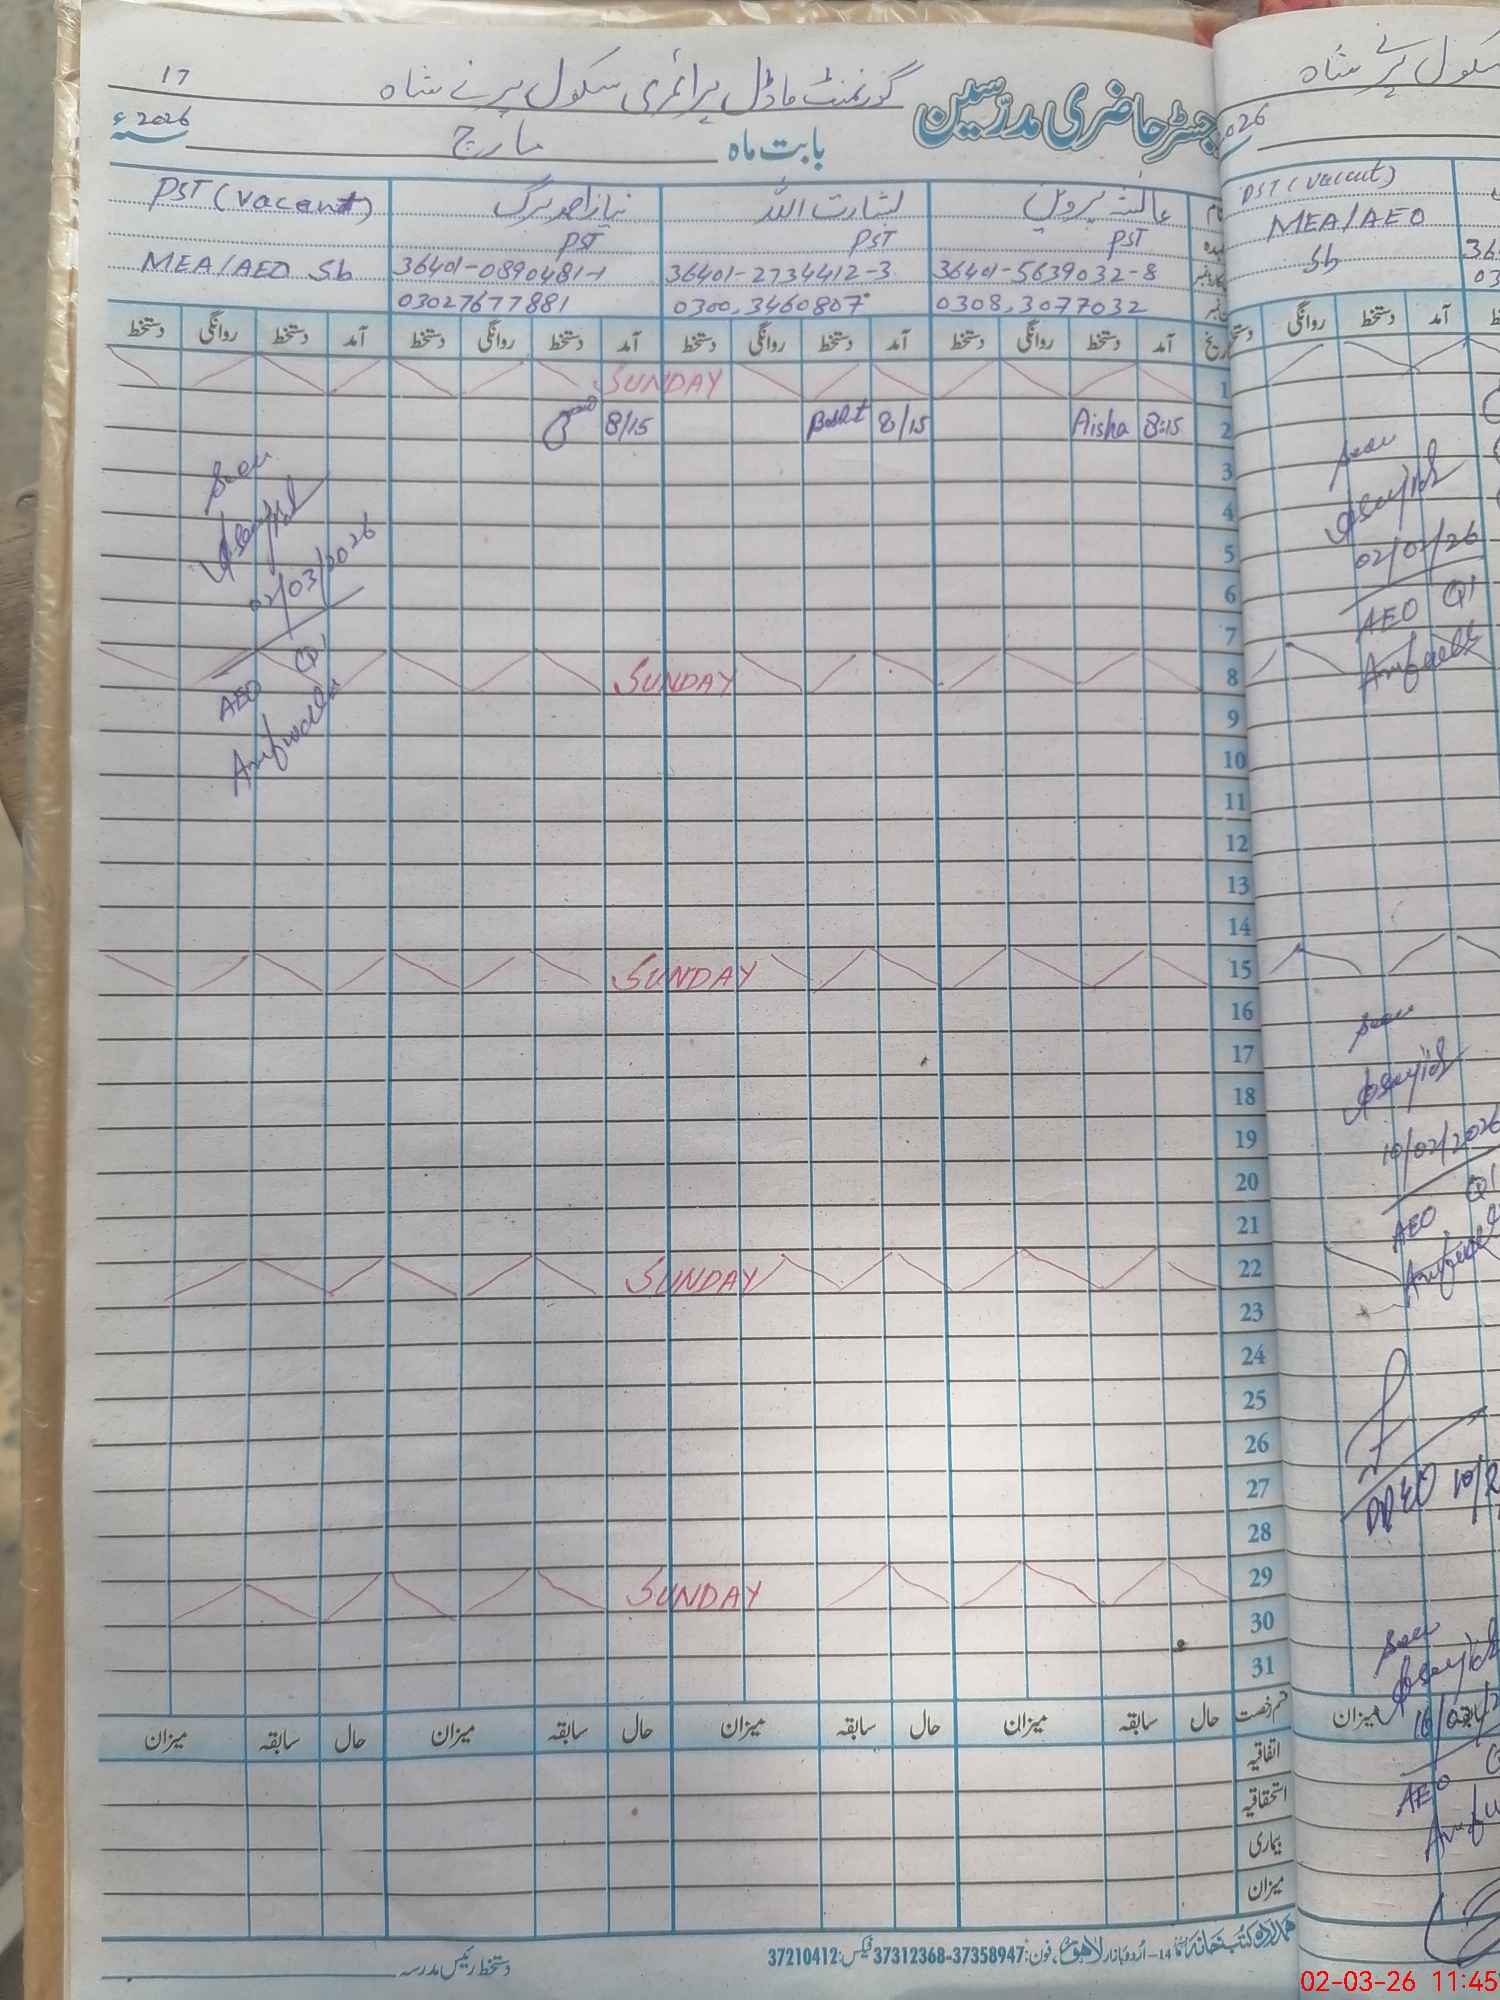 رجسٹر حاضری مدرسین گورنمنٹ ماڈل پرائمری سکول پرنے شاہ 17
بابت ماہ مارچ 2026ء
نام عائشہ پروین بشارت اللہ PST (vacant)
عہدہ PST PST PST
36401-5639032-8 36401-2734412-3 36401-0890481-1 MEA/AEO Sb
0308,3077032 0300,3460807 03027677881
تاریخ آمد دستخط روانگی دستخط آمد دستخط روانگی دستخط آمد دستخط روانگی دستخط آمد دستخط روانگی دستخط
1 SUNDAY
2 8:15 Aisha 8/15 8/15
3
4
5
6
7
8 SUNDAY
9
10
11
12
13
14
15 SUNDAY
16
17
18
19
20
21
22 SUNDAY
23
24
25
26
27
28
29 SUNDAY
30
31
Seen
02/03/2026
AEO Q1
قسم رخصت حال سابقہ میزان حال سابقہ میزان حال سابقہ میزان حال سابقہ میزان
اتفاقیہ
استحقاقیہ
بیماری
میزان
ہمدرد کتب خانہ 14-اردو بازار لاہور، فون: 37358947-37312368 فیکس: 37210412
دستخط رئیس مدرسہ
سکول پرنے شاہ
2026
PST (vacant)
MEA/AEO
Sb
آمد دستخط روانگی
Seen
02/02/26
AEO Q1
Seen
10/02/2026
AEO Q1
DDEO
Seen
میزان
AEO
02-03-26 11:45